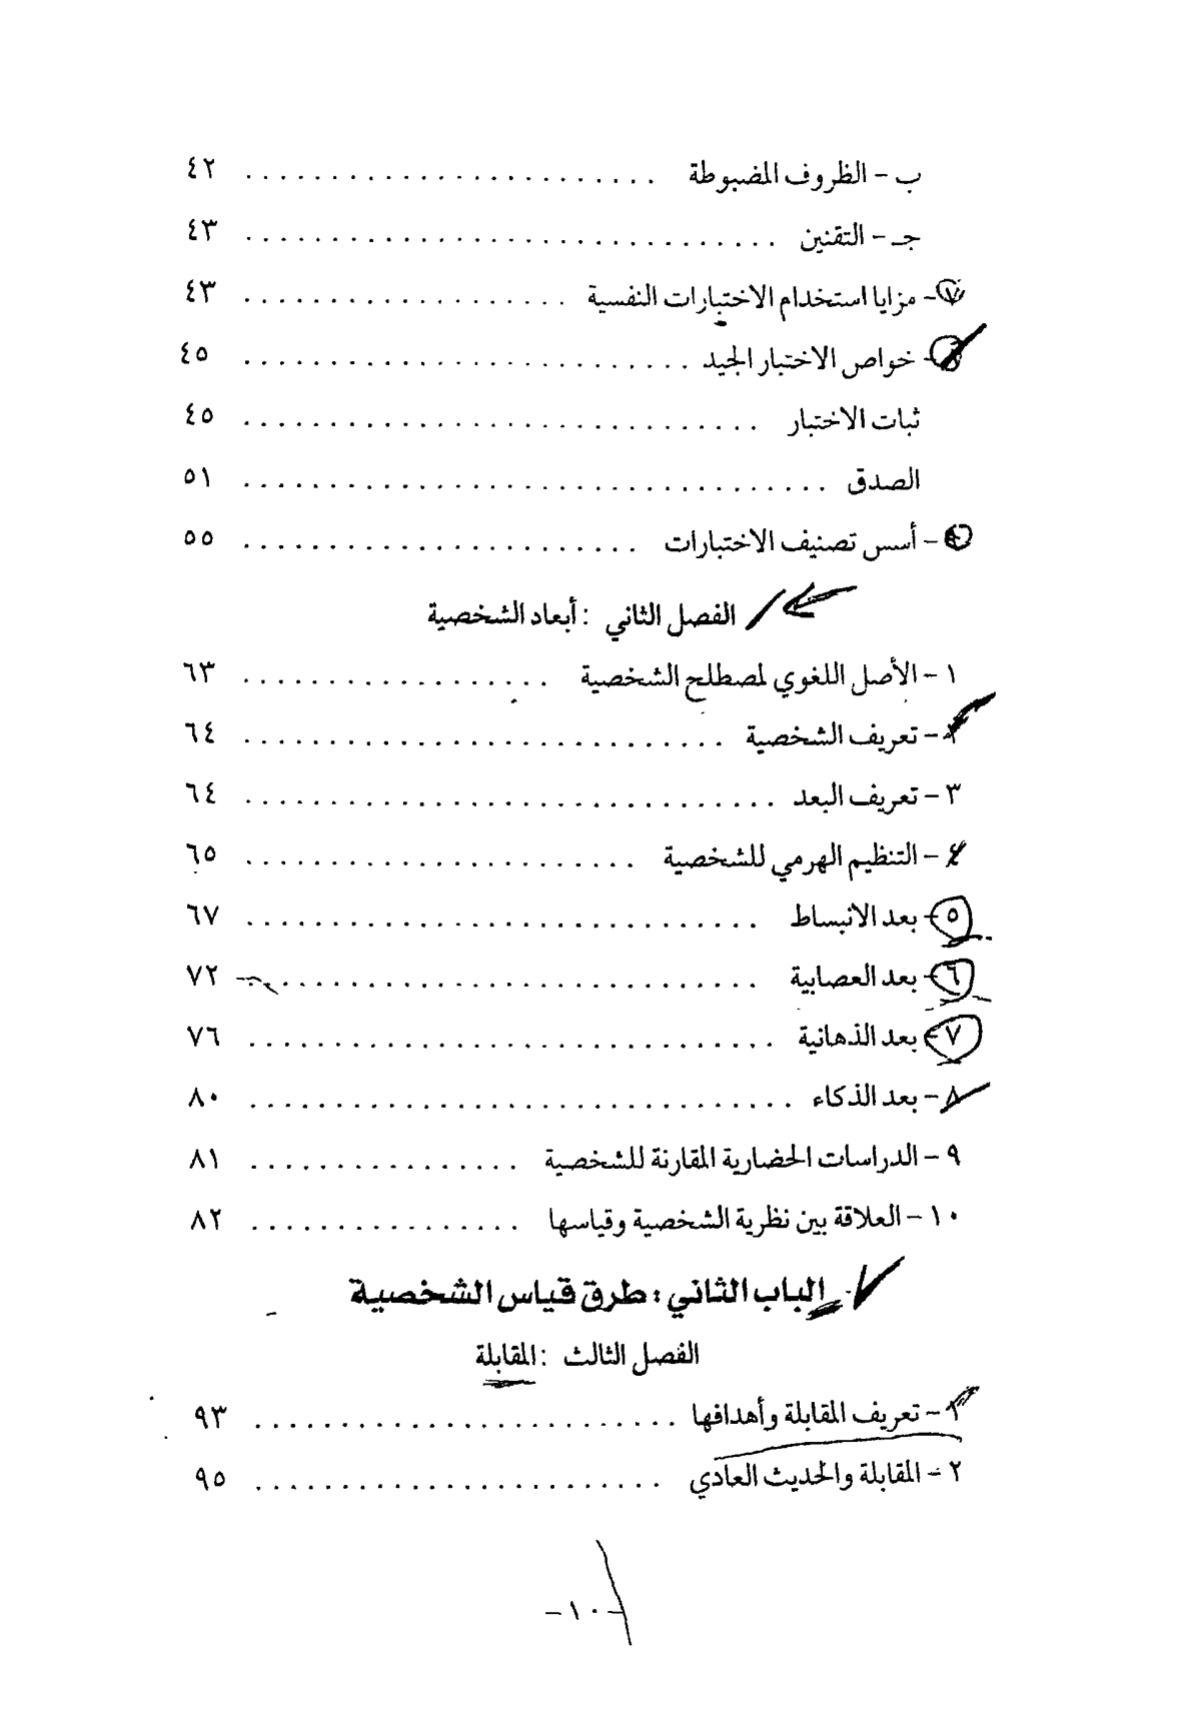 ب - الظروف المضبوطة . . . . . . . . . . . . . . . . . . . . . . . . ٤٢
جـ - التقنين . . . . . . . . . . . . . . . . . . . . . . . . . . . . . . . ٤٣
٧ - مزايا استخدام الاختبارات النفسية . . . . . . . . . . . . . . . . . . . ٤٣
٨ - خواص الاختبار الجيد . . . . . . . . . . . . . . . . . . . . . . . . . . ٤٥
ثبات الاختبار . . . . . . . . . . . . . . . . . . . . . . . . . . . . . . ٤٥
الصدق . . . . . . . . . . . . . . . . . . . . . . . . . . . . . . . . . . ٥١
٩ - أسس تصنيف الاختبارات . . . . . . . . . . . . . . . . . . . . . . . ٥٥
الفصل الثاني : أبعاد الشخصية
١ - الأصل اللغوي لمصطلح الشخصية . . . . . . . . . . . . . . . . . . ٦٣
٢ - تعريف الشخصية . . . . . . . . . . . . . . . . . . . . . . . . . . . . ٦٤
٣ - تعريف البعد . . . . . . . . . . . . . . . . . . . . . . . . . . . . . . . ٦٤
٤ - التنظيم الهرمي للشخصية . . . . . . . . . . . . . . . . . . . . . . . ٦٥
٥ - بعد الانبساط . . . . . . . . . . . . . . . . . . . . . . . . . . . . . . ٦٧
٦ - بعد العصابية . . . . . . . . . . . . . . . . . . . . . . . . . . . . . . ٧٢
٧ - بعد الذهانية . . . . . . . . . . . . . . . . . . . . . . . . . . . . . . . ٧٦
٨ - بعد الذكاء . . . . . . . . . . . . . . . . . . . . . . . . . . . . . . . . ٨٠
٩ - الدراسات الحضارية المقارنة للشخصية . . . . . . . . . . . . . . . . ٨١
١٠ - العلاقة بين نظرية الشخصية وقياسها . . . . . . . . . . . . . . . . ٨٢
الباب الثاني : طرق قياس الشخصية
الفصل الثالث : المقابلة
١ - تعريف المقابلة وأهدافها . . . . . . . . . . . . . . . . . . . . . . . . . ٩٣
٢ - المقابلة والحديث العادي . . . . . . . . . . . . . . . . . . . . . . . . ٩٥
- ١٠ -